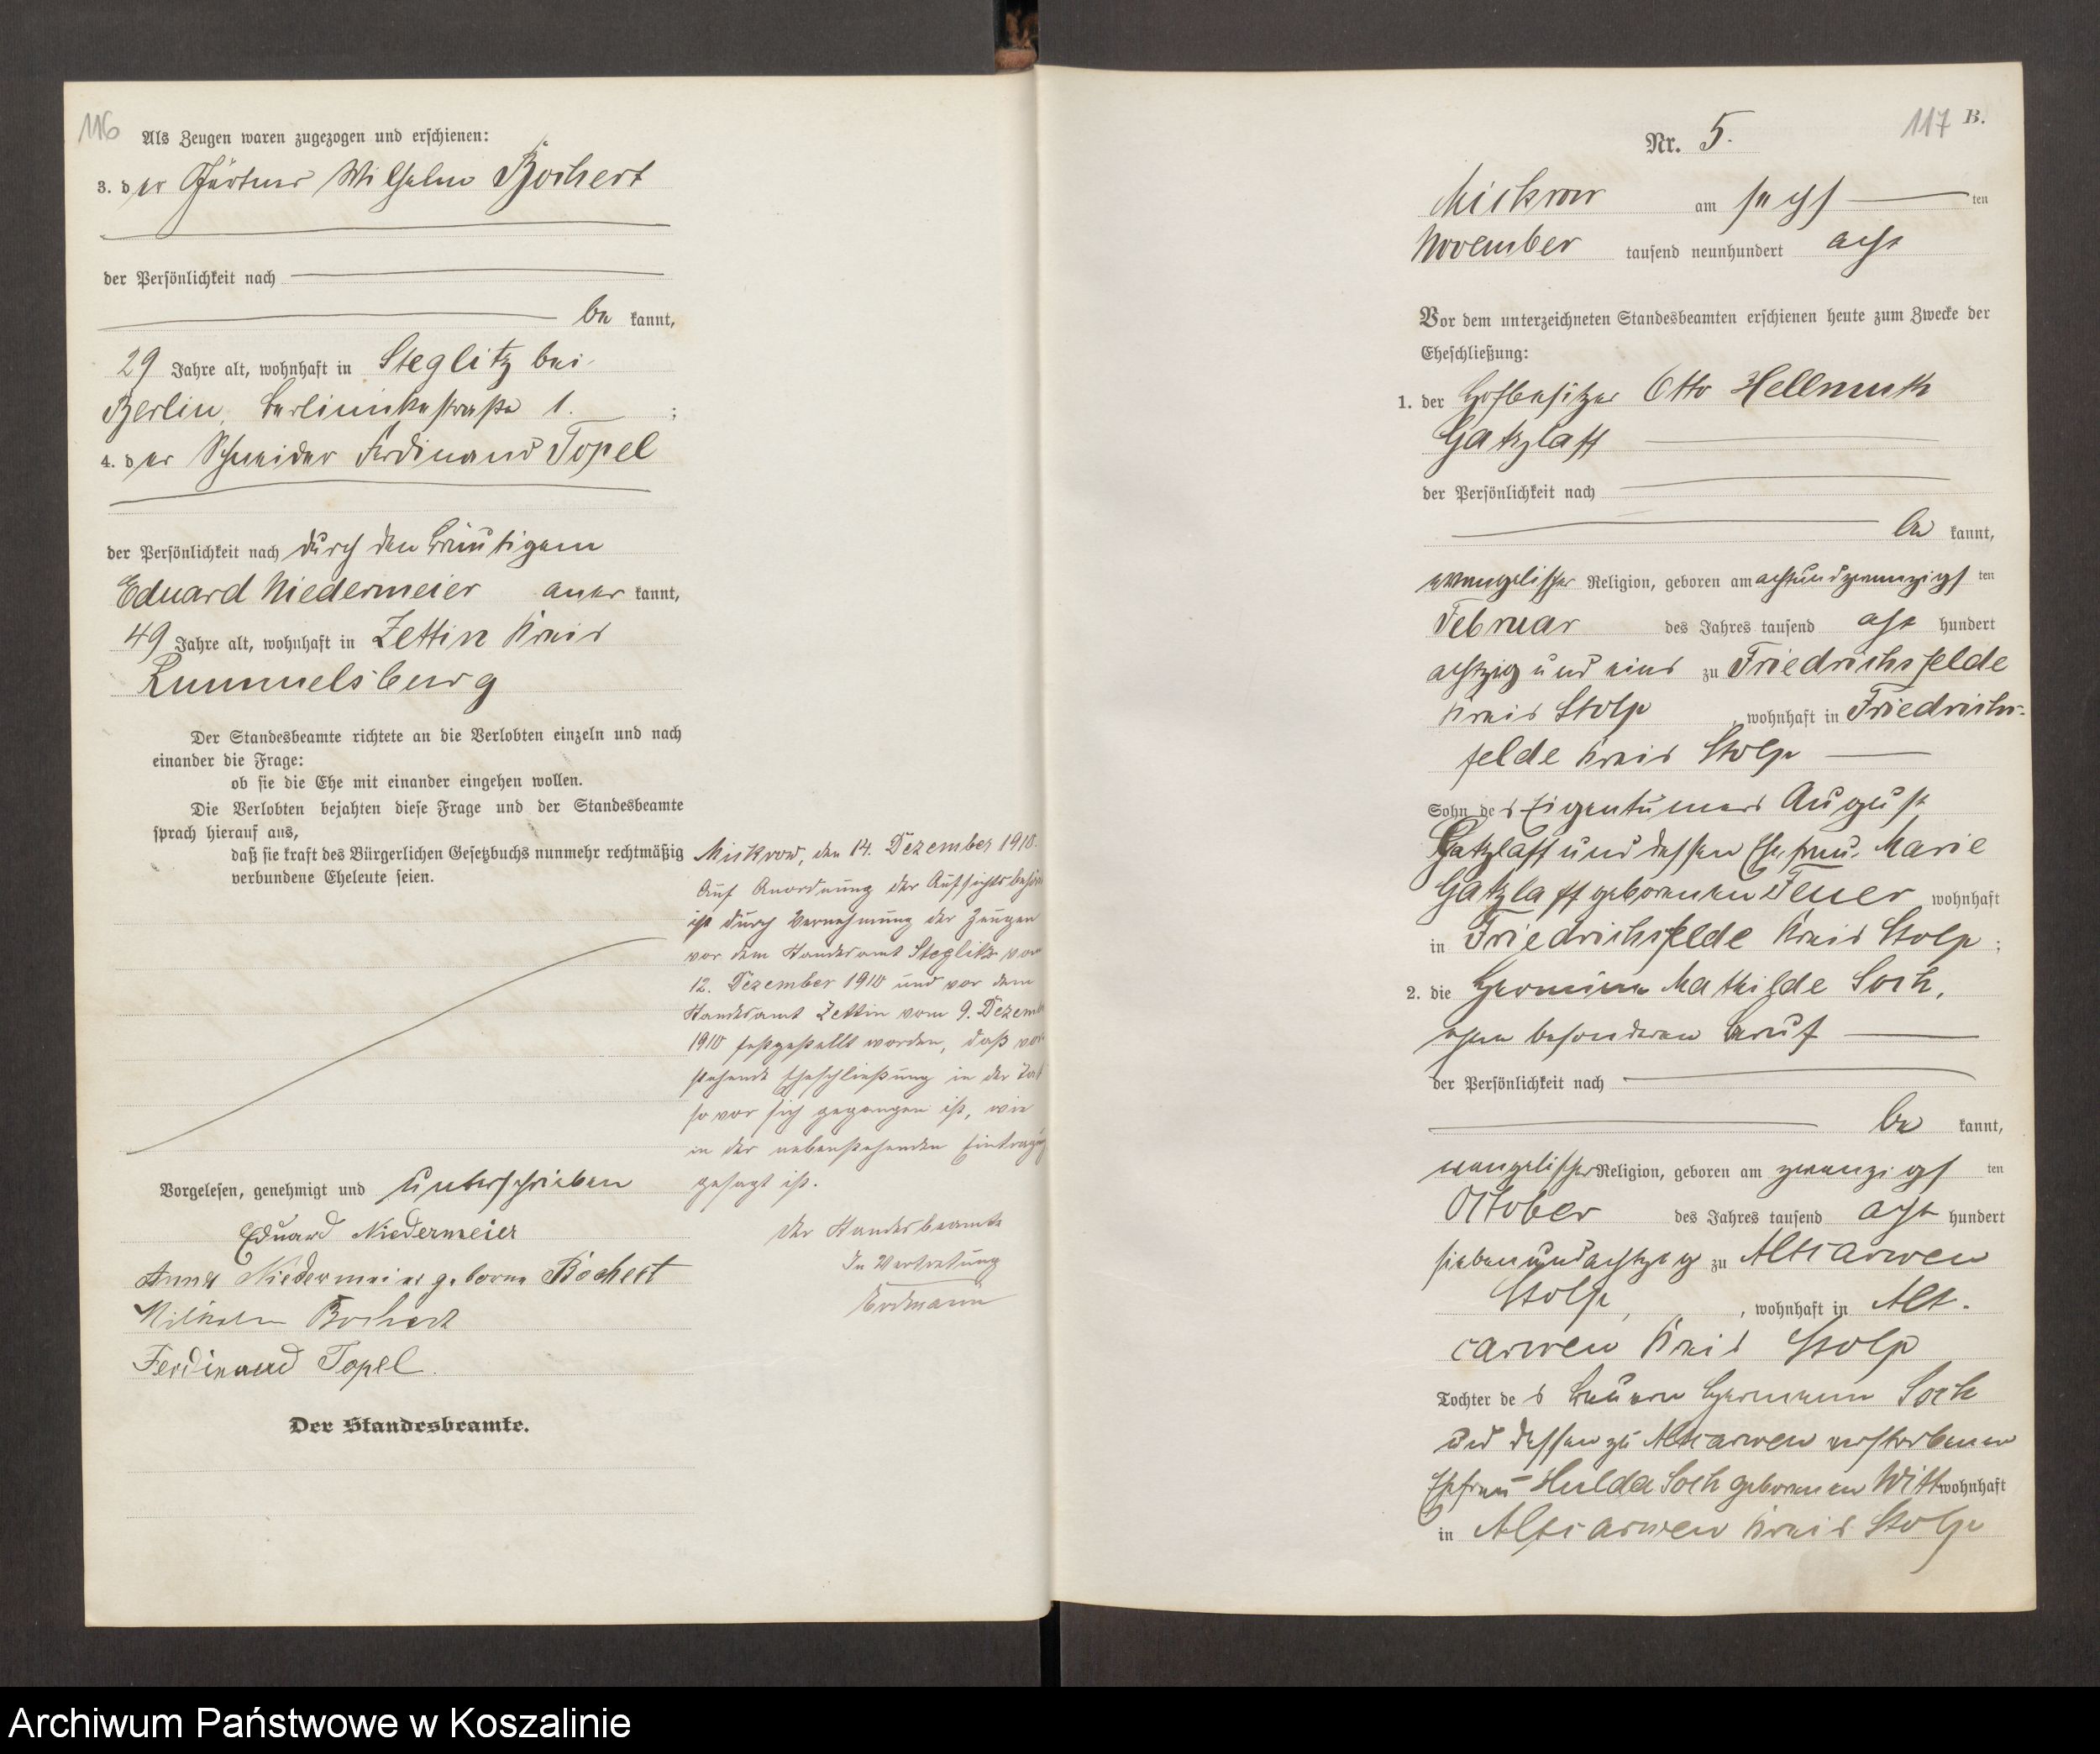 116
Als Zeugen waren zugezogen und erschienen:
3. der Gärtner Wilhelm Bochert
der Persönlichkeit nach
be kannt,
29 Jahre alt, wohnhaft in Steglitz bei
Berlin, Berlinickestraße 1. ;
4. der Schneider Ferdinand Topel
der Persönlichkeit nach durch den Bräutigam
Eduard Niedermeier aner kannt,
49 Jahre alt, wohnhaft in Zettin Kreis
Rummelsburg
Der Standesbeamte richtete an die Verlobten einzeln und nach
einander die Frage:
ob sie die Ehe mit einander eingehen wollen.
Die Verlobten bejahten diese Frage und der Standesbeamte
sprach hierauf aus,
daß sie kraft des Bürgerlichen Gesetzbuchs nunmehr rechtmäßig
verbundene Eheleute seien.
Vorgelesen, genehmigt und unterschrieben
Eduard Niedermeier
Anna Niedermeier geborne Bochert
Wilhelm Bochert
Ferdinand Topel.
Der Standesbeamte.
Mickrow, den 14. Dezember 1910.
Auf Anordnung der Aufsichtsbehör
ist durch Vernehmung der Zeugen
vor dem Standesamt Steglitz vom
12. Dezember 1910 und vor dem
Standesamt Zettin vom 9. Dezem
1910 festgestellt worden, daß vor
stehende Eheschließung in der Tat
so vor sich gegangen ist, wie
in der nebenstehenden Eintragung
gesagt ist.
Der Standesbeamte
In Vertretung
Erdmann
117 B.
Nr. 5.
Mickrow am sechs ten
November tausend neunhundert acht
Vor dem unterzeichneten Standesbeamten erschienen heute zum Zwecke der
Eheschließung:
1. der Hofbesitzer Otto Hellmuth
Gatzlaff
der Persönlichkeit nach
be kannt,
evangelischer Religion, geboren am achtundzwanzigs ten
Februar des Jahres tausend acht hundert
achtzig und eins zu Friedrichsfelde
Kreis Stolp, wohnhaft in Friedrichs-
felde Kreis Stolp
Sohn des Eigentümers August
Gatzlaff und dessen Ehefrau Marie
Gatzlaff geborenen Feuer wohnhaft
in Friedrichsfelde Kreis Stolp ;
2. die Hermine Mathilde Sock,
ohne besonderen Beruf
der Persönlichkeit nach
be kannt,
evangelischer Religion, geboren am zwanzigs ten
Oktober des Jahres tausend acht hundert
siebenundachtzig zu Altcarwen
Stolp, , wohnhaft in Alt.
carwen Kreis Stolp
Tochter des Bauern Hermann Sock
und dessen zu Altcarwen verstorbenen
Ehefrau Hulda Sock geborenen Witt wohnhaft
in Altcarwen Kreis Stolp
Archiwum Państwowe w Koszalinie